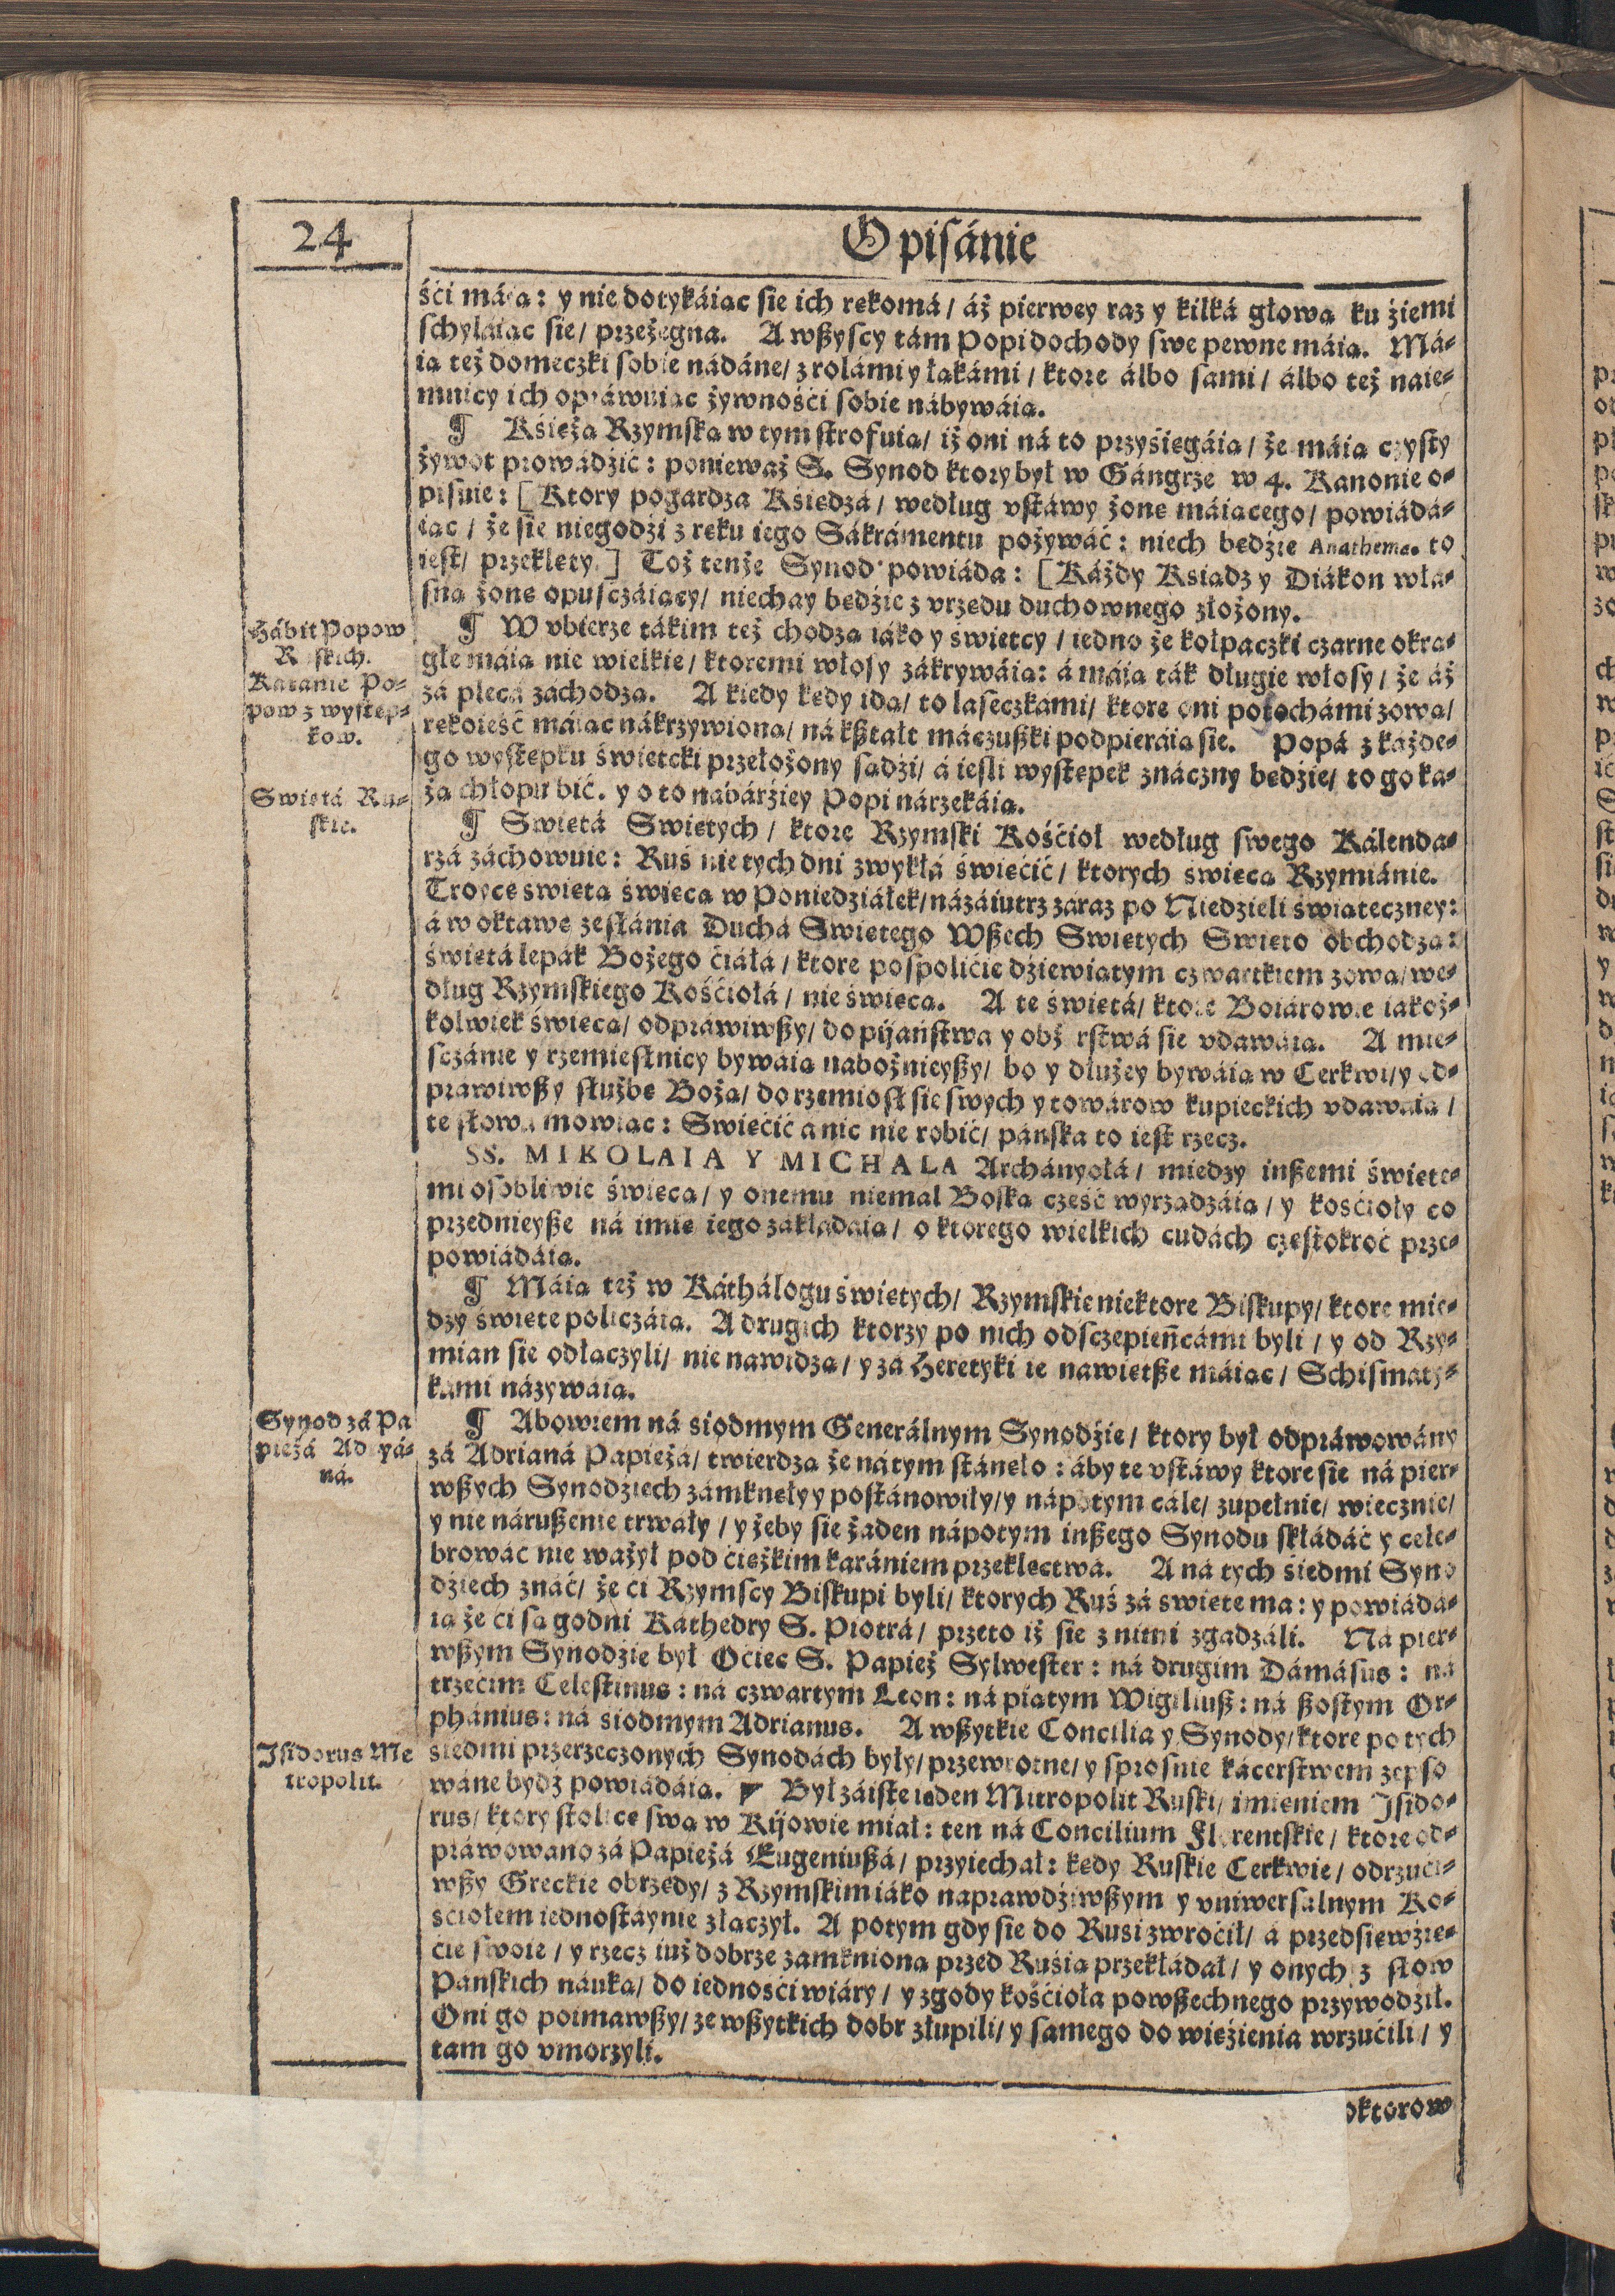 24
Opisánie
śći máia: y nie dotykáiac sie ich rekomá / áż pierwey raz y kilká głowa ku źiemi
schyláiac sie / przeżegna. A wßyscy tám Popi dochody swe pewne máia. Má-
ia też domeczki sobie nádáne / z rolámi y łakámi / ktore álbo sami / álbo też naie-
mnicy ich opráwuiac żywnośći sobie nábywáia.
¶ Kśieża Rzymska w tym strofuia / iż oni ná to przyśiegáia / że máia czysty
żywot prowádźić: poniewaź S. Synod ktory był w Gángrze w 4. Kanonie o-
pisuie: [Ktory pogardza Kśiedzá / według vstáwy żone máiacego / powiádá-
iac / że sie niegodźi z reku iego Sákrámentu pożywáć: niech bedźie Anathema. to
iest / przeklety.] Toż tenże Synod powiáda: [Káżdy Ksiadz y Diákon wła-
sna żone opusczáiacy / niechay bedźie z vrzedu duchownego złożony.
Hábit Popow
Ruskich.
¶ W vbierze tákim też chodza iáko y swietcy / iedno że kołpaczki czarne okra-
głe máia nie wielkie / ktoremi włosy zákrywáia: á máia ták długie włosy / że áż
Karanie Po-
pow z wystep-
kow.
zá plecá záchodza. A kiedy kedy ida / to laseczkami / ktore oni potochámi zowa /
rekoieść máiac nákrzywiona / ná kßtałt máczußki podpieráia sie. Popá z każde-
go wystepku świetcki przełożony sadźi / á iesli wystepek znáczny bedźie / to go ka-
Swietá Ru-
skie.
ża chłopu bić. y o to nabárźiey Popi nárzekáia.
¶ Swietá Swietych / ktore Rzymski Kośćioł według swego Kálenda-
rzá záchowuie: Ruś nie tych dni zwykłá świećić / ktorych świeca Rzymiánie.
Troyce swieta świeca w Poniedziáłek / názáiutrz záraz po Niedzieli świateczney:
á w oktawe zesłánia Duchá Swietego Wßech Swietych Swieto obchodza:
świetá lepák Bożego ćiáłá / ktore pospolićie dźiewiatym czwartkiem zowa / we-
dług Rzymskiego Kośćiołá / nie świeca. A te świetá / ktore Boiárowie iakoż-
kolwiek świeca / odpráwiwßy / do pijaństwa y obżerstwá sie vdawáia. A mie-
sczánie y rzemieslnicy bywáia nabożnieyßy / bo y dłużey bywáia w Cerkwi / y od-
práwiwßy służbe Boża / do rzemiosł sie swych y towárow kupieckich vdawáia /
te słowa mowiac: Swiećić a nic nie robić / páńska to iest rzecz.
SS. MIKOLAIA Y MICHALA Archányołá / miedzy inßemi świete-
mi osobliwie świeca / y onemu niemal Boska cześć wyrzadzáia / y kośćioły co
przednieyße ná imie iego zákładáia / o ktorego wielkich cudách czestokroć prze-
powiádáia.
¶ Máia też w Káthálogu świetych / Rzymskie niektore Biskupy / ktore mie-
dzy świete policzáia. A drugich ktorzy po nich odsczepieńcámi byli / y od Rzy-
mian sie odłaczyli / nie nawidza / y zá Heretyki ie nawietße máiac / Schismaty-
kami názywáia.
Synod zá Pa
pieżá Adryá-
ná.
¶ Abowiem ná siodmym Generálnym Synodźie / ktory był odpráwowány
zá Adrianá Papieżá / twierdza że ná tym stáneło: áby te vstáwy ktore sie ná pier-
wßych Synodziech zámkneły y postánowiły / y nápotym cále / zupełnie / wiecznie /
y nie nárußenie trwały / y żeby sie żaden nápotym inßego Synodu składáć y cele-
browáć nie ważył pod ćieżkim karániem przeklectwá. A ná tych śiedmi Syno
dźiech znáć / że ći Rzymscy Biskupi byli / ktorych Ruś zá swiete ma: y powiádá-
ia że ći sa godni Káthedry S. Piotrá / przeto iż sie z nimi zgadzáli. Ná pier-
wßym Synodźie był Oćiec S. Papież Sylwester: ná drugim Dámásus: ná
trzecim Celestinus: ná czwartym Leon: ná piatym Wigiliuß: ná ßostym Or-
phánius: ná siodmym Adrianus. A wßytkie Concilia y Synody / ktore po tych
Isidorus Me
tropolit.
śiedmi przerzeczonych Synodách były / przewrotne / y sprosnie kácerstwem zepso
wáne bydź powiádáia. Był záiste ieden Mitropolit Ruski / imieniem Isido-
rus / ktory stolice swa w Kijowie miał: ten ná Concilium Florentskie / ktore od-
práwowano zá Papieżá Eugeniußá / przyiechał: kedy Ruskie Cerkwie / odrzući-
wßy Greckie obrzedy / z Rzymskim iáko naprawdźiwßym y vniwersalnym Ko-
śćiołem iednostáynie złaczył. A potym gdy sie do Rusi zwroćił / á przedsiewźie-
ćie swoie / y rzecz iuż dobrze zamkniona przed Ruśia przekłádał / y onych z słow
Páńskich náuka / do iednośći wiáry / y zgody kośćioła powßechnego przywodźił.
Oni go poimawßy / ze wßytkich dobr złupili / y samego do wieźienia wrzućili / y
tam go vmorzyli.
oktorow